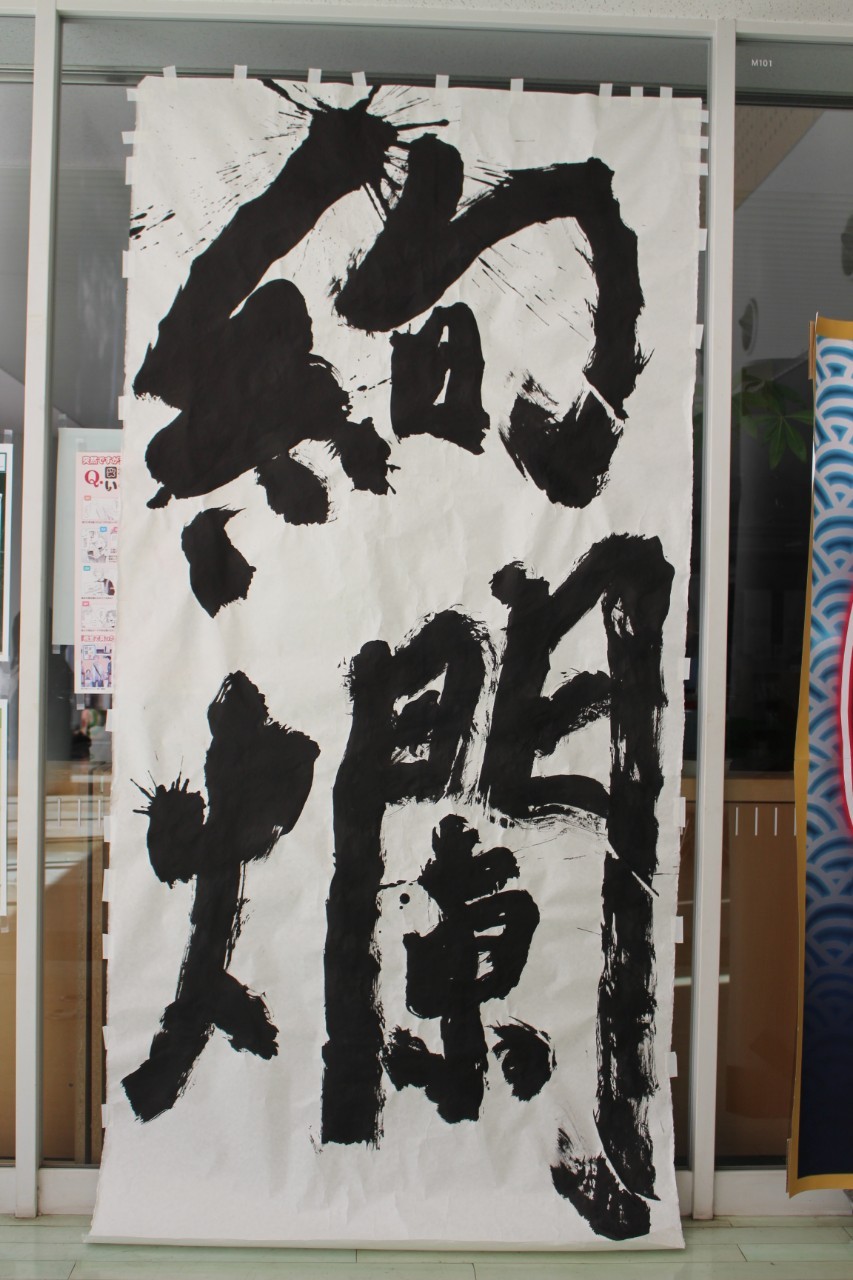 絢
爛
M101
Q.